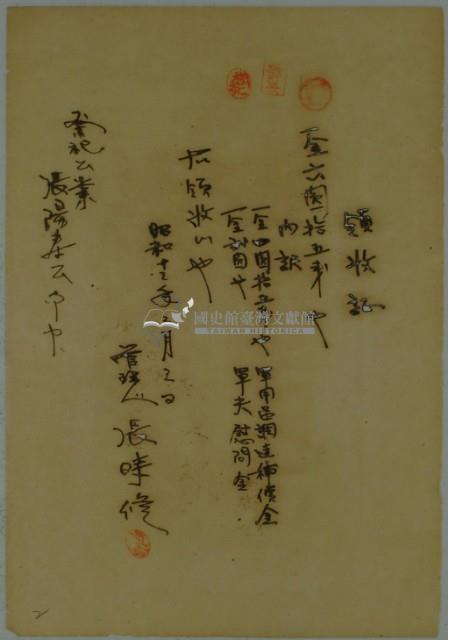 領收証
金六圓拾五錢也
内訳
一金四圓拾五錢也 軍用區調達補償金
一金貳圓也 軍夫慰問金
右領收候也
昭和十三年 月三日
管理人 張 修
祭祀公業
張陽春公 中
國史館臺灣文獻館
TAIWAN HISTORICA
2